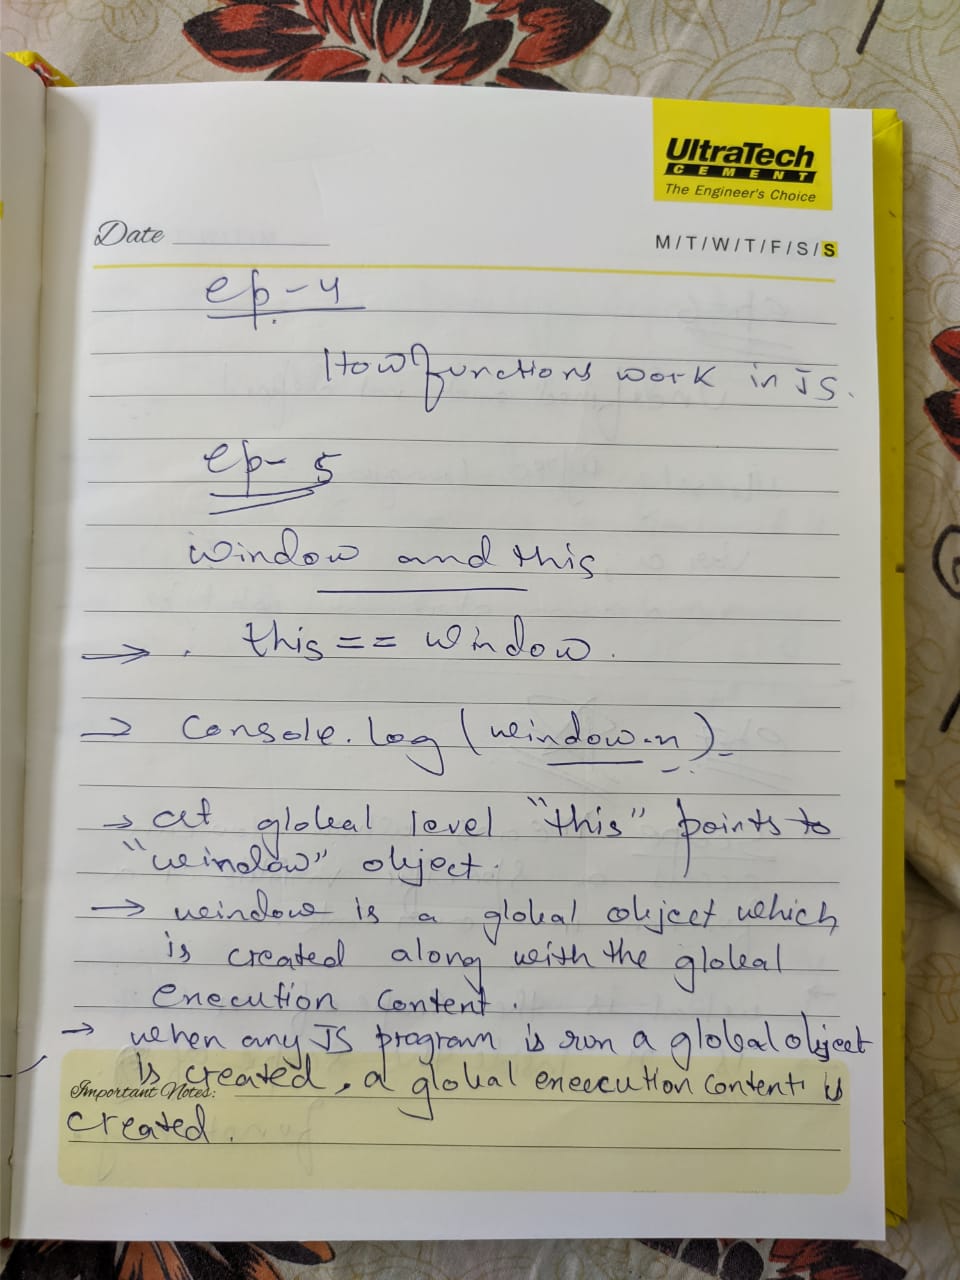 UltraTech
CEMENT
The Engineer's Choice
Date
M/T/W/T/F/S/S
ep-4
How functions work in JS.
ep-5
window and this
→ . this == window.
→ console.log (window.x)
→ at global level "this" points to
"window" object.
→ window is a global object which
is created along with the global
execution context.
→ when any JS program is run a global object
is created, a global exeecution context is
Important Notes:
created.